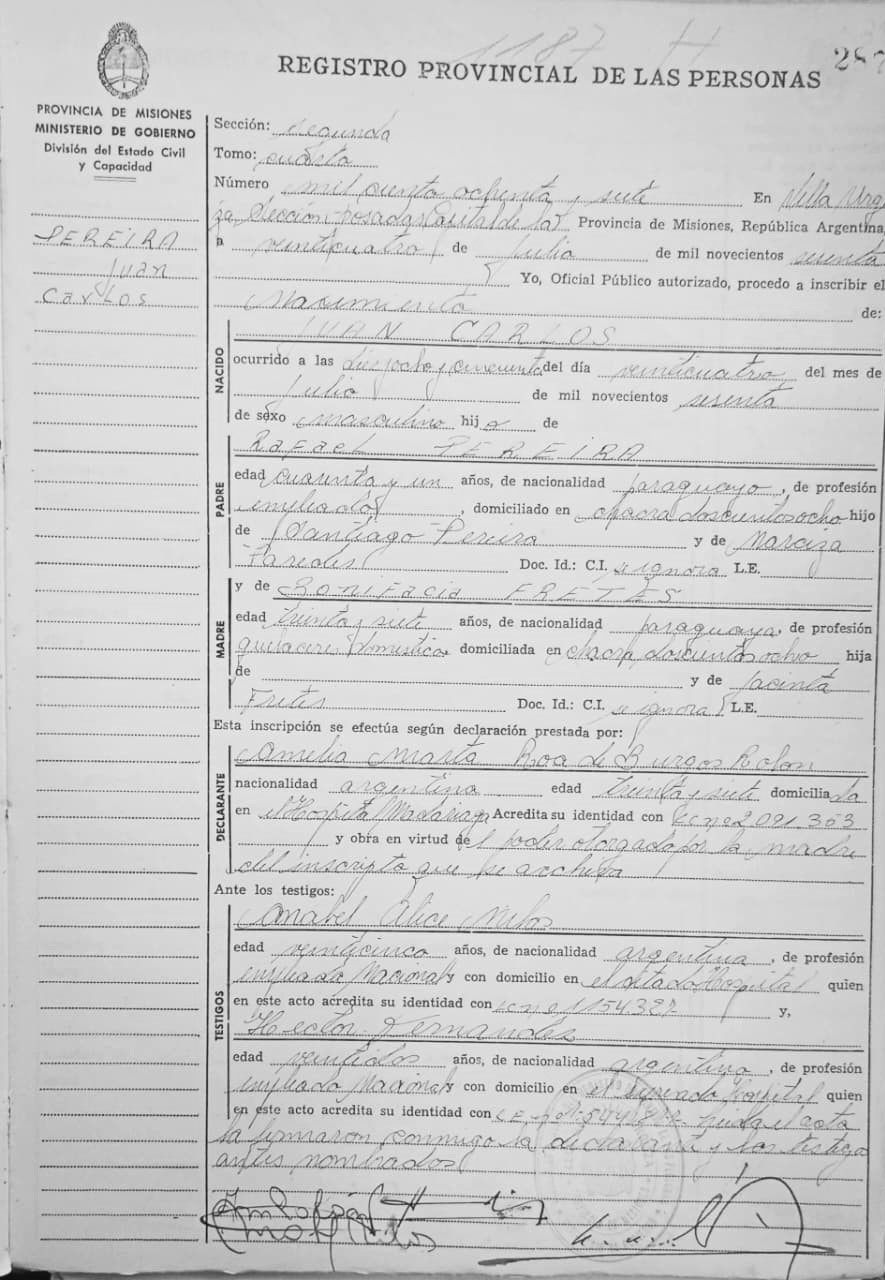 1187 H
287
REGISTRO PROVINCIAL DE LAS PERSONAS
PROVINCIA DE MISIONES
MINISTERIO DE GOBIERNO
División del Estado Civil
y Capacidad
PEREIRA
Juan
Carlos
Sección: segunda
Tomo: cuarto
Número mil ciento ochenta y siete En Villa Urqui
za, Sección Posadas Capital de la Provincia de Misiones, República Argentina,
a veinticuatro de julio de mil novecientos sesenta
Yo, Oficial Público autorizado, procedo a inscribir el
Nacimiento de:
NACIDO
JUAN CARLOS
ocurrido a las dieciocho y cincuenta del día veinticuatro del mes de
julio de mil novecientos sesenta
de sexo masculino hijo de
PADRE
Rafael PEREIRA
edad cuarenta y un años, de nacionalidad paraguayo, de profesión
empleado, domiciliado en chacra doscientos ocho hijo
de Santiago Pereira y de Narciza
Paredes Doc. Id.: C.I. se ignora L.E.
MADRE
y de Bonifacia FRETES
edad treinta y siete años, de nacionalidad paraguaya, de profesión
quehaceres domesticos domiciliada en chacra doscientos ocho hija
de y de Jacinta
Fretes Doc. Id.: C.I. se ignora L.E.
Esta inscripción se efectúa según declaración prestada por:
DECLARANTE
Amelia Marta Roa de Burgos Rolon
nacionalidad argentina edad treinta y siete domiciliada
en el Hospital Madariaga Acredita su identidad con lcnº 2091353
y obra en virtud del poder otorgado por la madre
del inscripto que se archiva
Ante los testigos:
TESTIGOS
Anabel Alice
edad veinticinco años, de nacionalidad argentina, de profesión
empleado Nacional y con domicilio en el citado Hospital quien
en este acto acredita su identidad con lcnº y,
Hector Fernandez
edad veintidos años, de nacionalidad argentina, de profesión
empleado Nacional y con domicilio en el Hospital quien
en este acto acredita su identidad con L.E. nº leida el acta
la firmaron conmigo la declarante y los testigos
antes nombrados